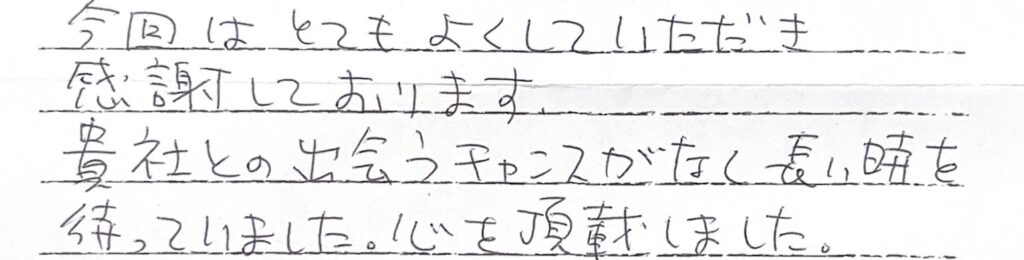 今回はとてもよくしていただき
感謝しております。
貴社との出会うチャンスがなく長い時を
待っていました。心を頂戴しました。